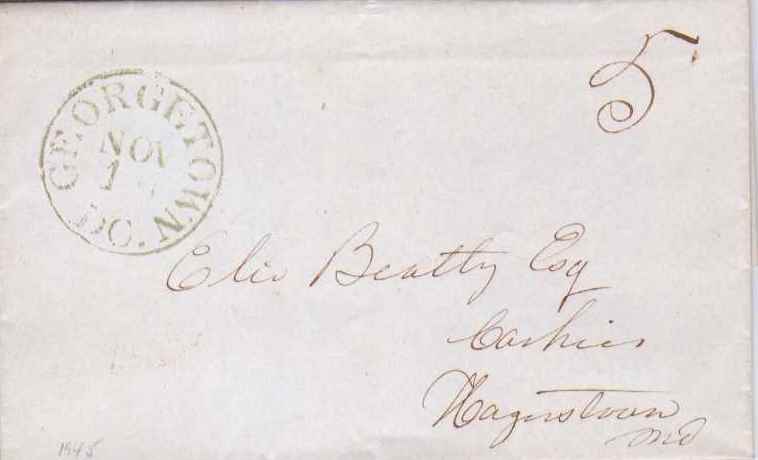 5
GEORGETOWN
NOV
1
DC.
Elie Beatty Esq
Cashier
Hagerstown
Md
1845